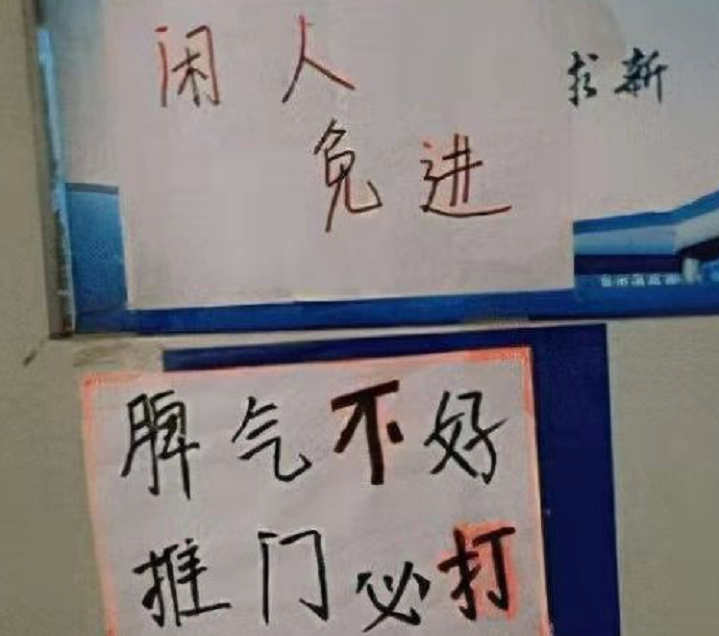 闲人
求新
免进
脾气不好
推门必打